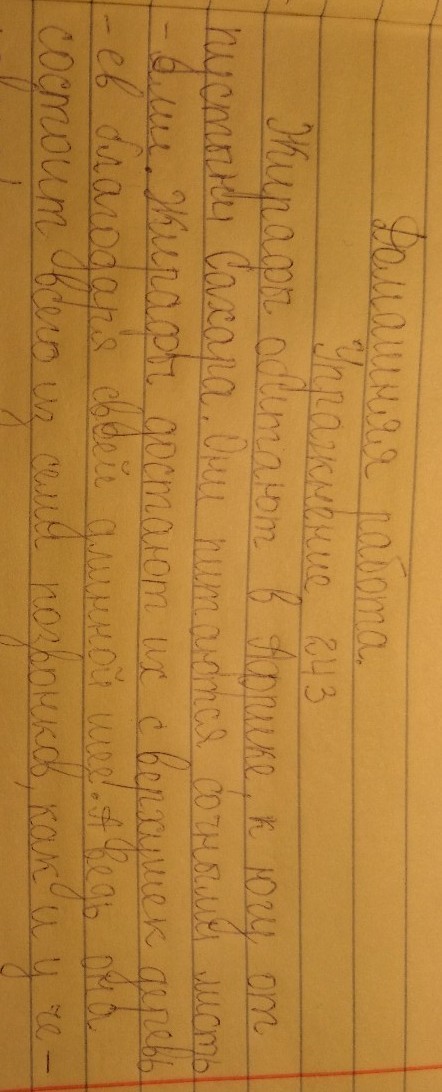 Домашняя работа.
Упражнение 243
Жирафы обитают в Африке, к югу от
пустыни Сахара. Они питаются сочными листь
-ями. Жирафы достают их с верхушек деревь
-ев благодаря своей длинной шее. А ведь она
состоит всего из семи позвонков, как и у че-